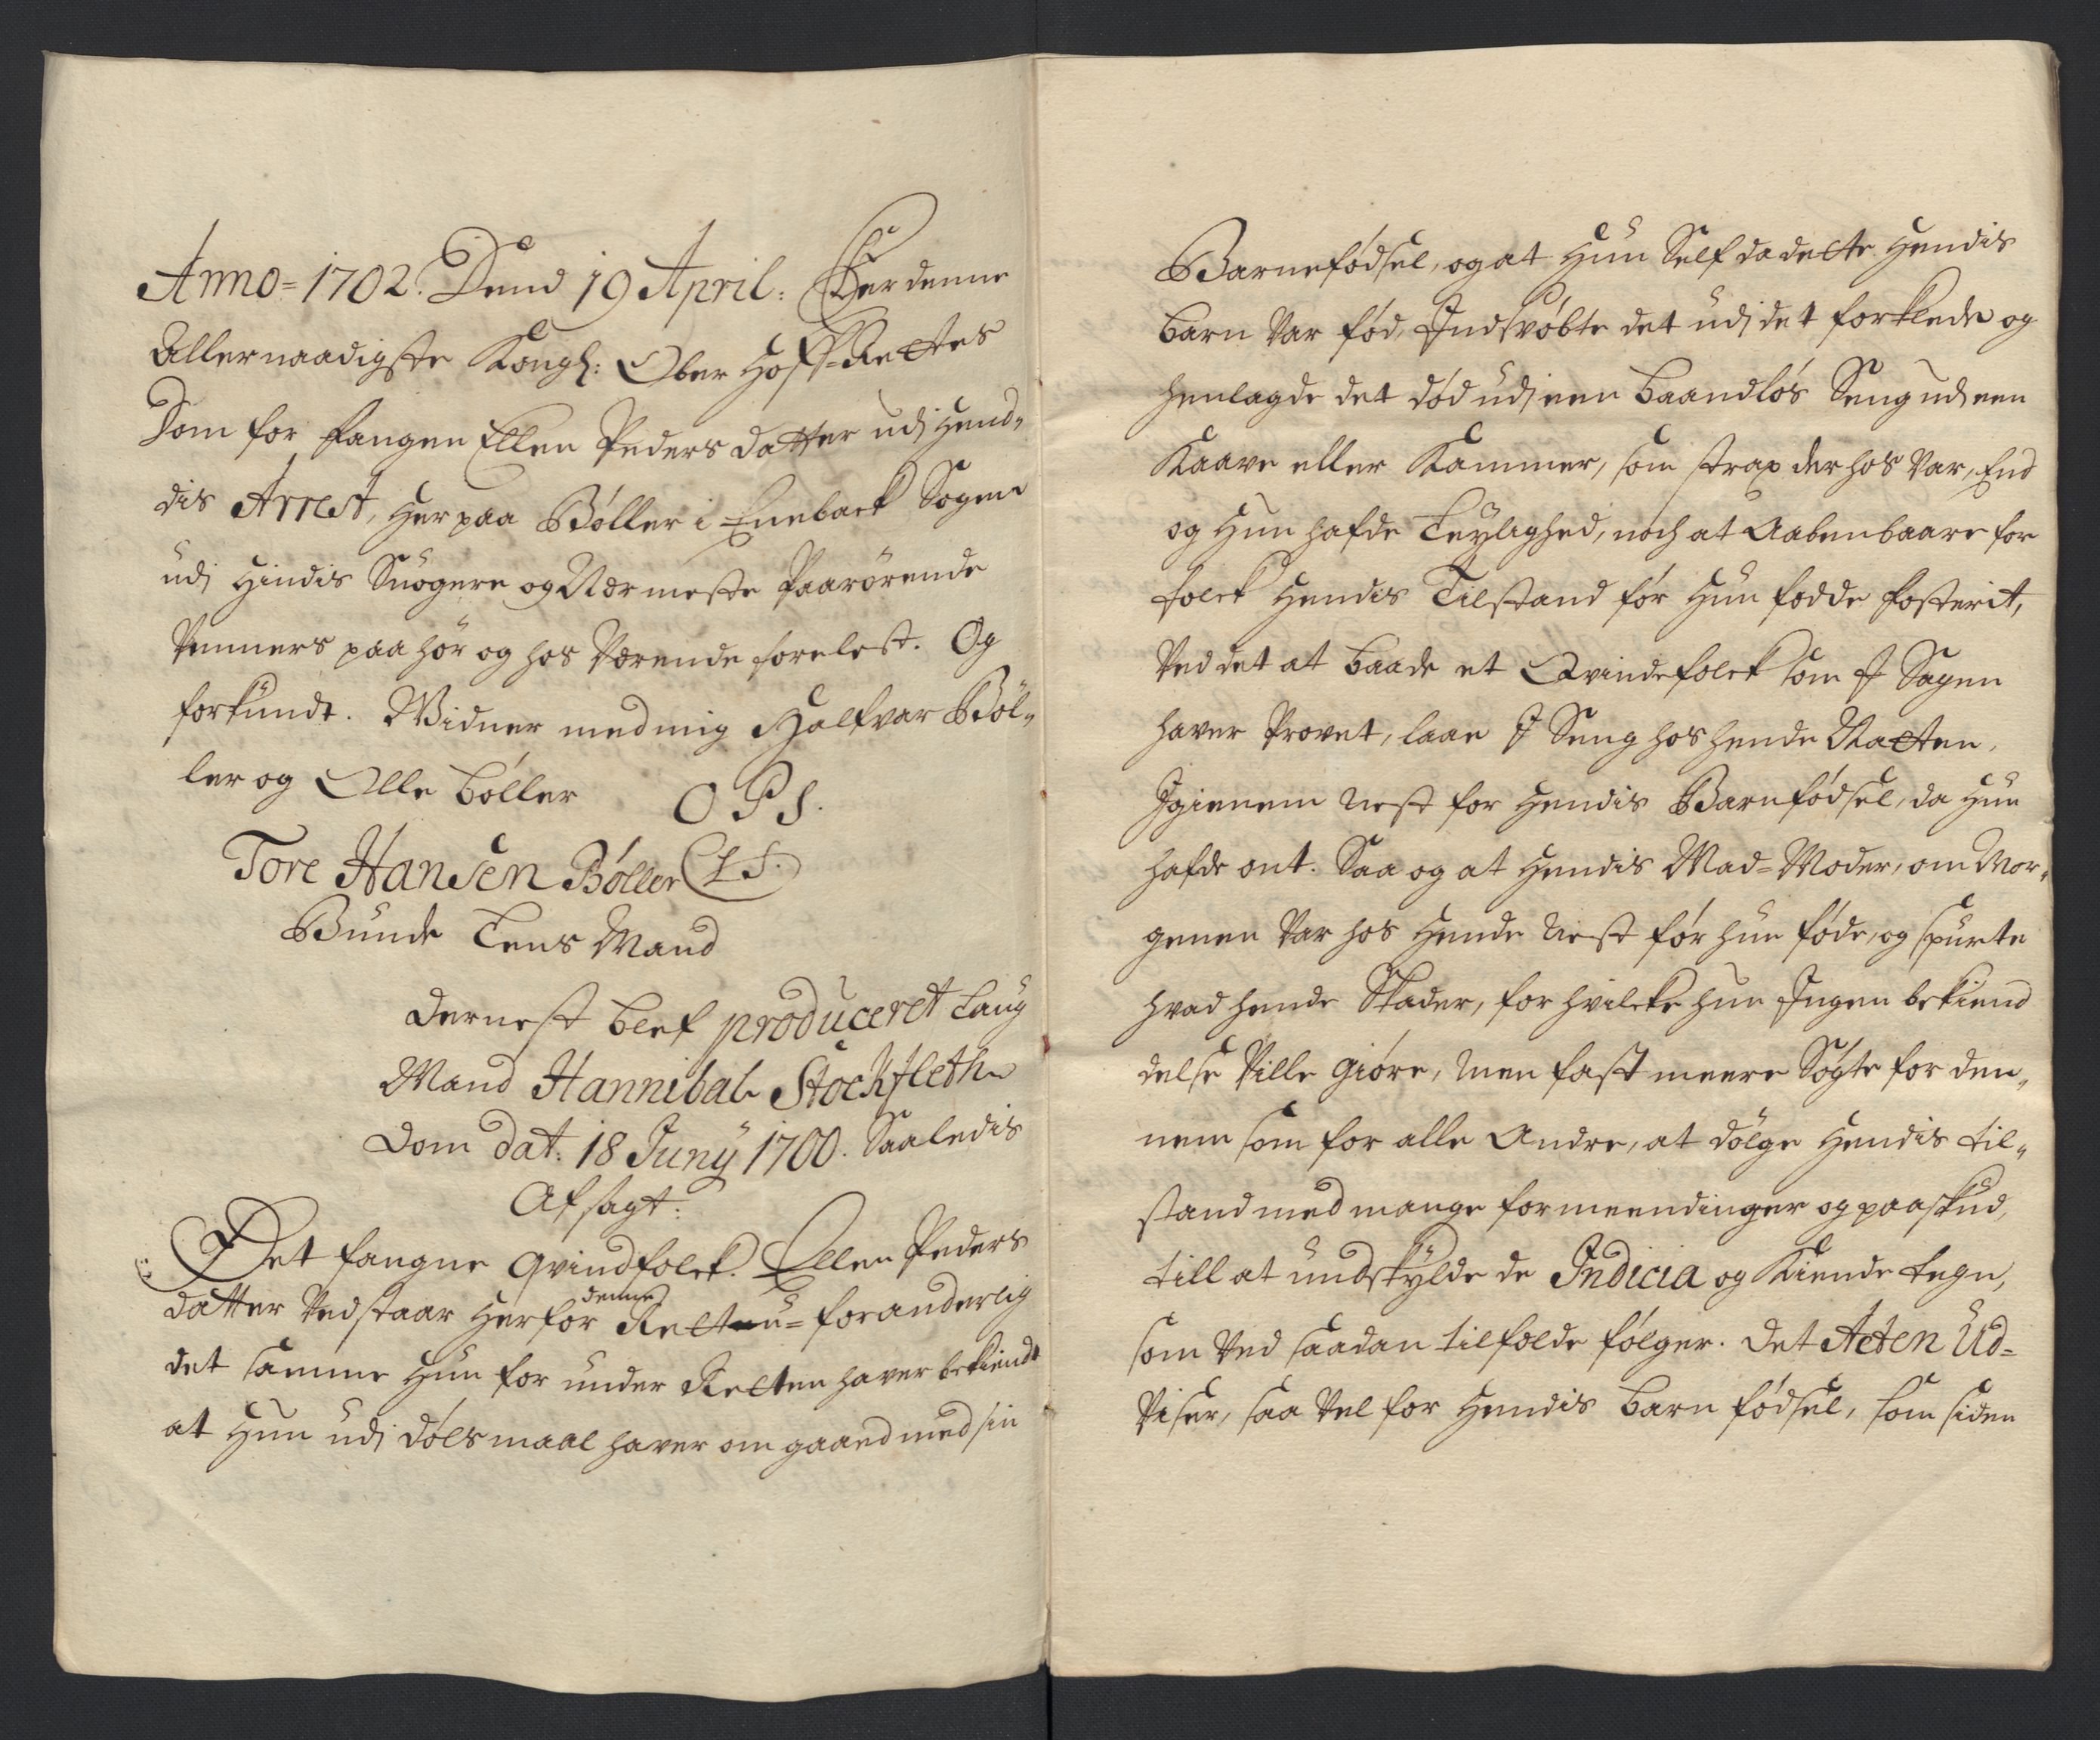 Anno = 1702. Dend 19 April: Er denne
Allernaadigste Kongl: Ober Hoff-Rettes
Dom for fangen Ellen Peders datter udj Hen-
dis Arrest, Her paa Bøller i Eneback Sogen
udj Hindis Suogere og Nærmeste Paarørende
Venners paahør og hos Værende forelest. Og
forkundt. Widner med mig Halfvar Bøl-
ler og Olle Bøller O P S.
Tore Hansen Bøller (L S.)
Bunde Lens Mand
Dernest blef produceret Laug
Mand Hannibal Stockfleth
Dom dat: 18 Juny 1700. Saaledis
Afsagt:
Det fangne Qvindfolck. Ellen Peders
datter Vedstaar Her for denne Rett u-foranderlig
det samme Hun for under Retten haver bekiendt
at Hun udj dølsmaal haver om gaaed med sin
Barnefødsel, og at Hun Self da dette Hendis
barn Var fød, Indsvøbte det udj det forklede og
henlagde det død udj een baandløs Seng udj een
Kaave eller Kammer, som strax der hos Var, End
og Hun hafde Leylighed, noch at Aabenbaare for
folck Hendis Tilstand før Hun fødde fosterit,
Ved det at baade et Qvindefolck som J Sagen
haver Provet, laae J Seng hos hende Natten,
Igienem nest for Hendis Barnfødsel, da Hun
hafde ont. Saa og at Hendis Mad-Moder, om Mor-
genen Var hos Hende nest før hun føde, og spurte
hvad hende Skader, for hvilcke hun Ingen bekiend
delse Ville giøre, men fast meere Søgte for den-
nem som for alle Andre, at dølge Hendis til-
stand med mange formeendinger og paaskud,
till at undskylde de Indicia og Kiende tegn,
som Ved saadan tilfælde følger. Det Acten Ud=
Viser, saa Vel for Hendis barn fødsel, som siden